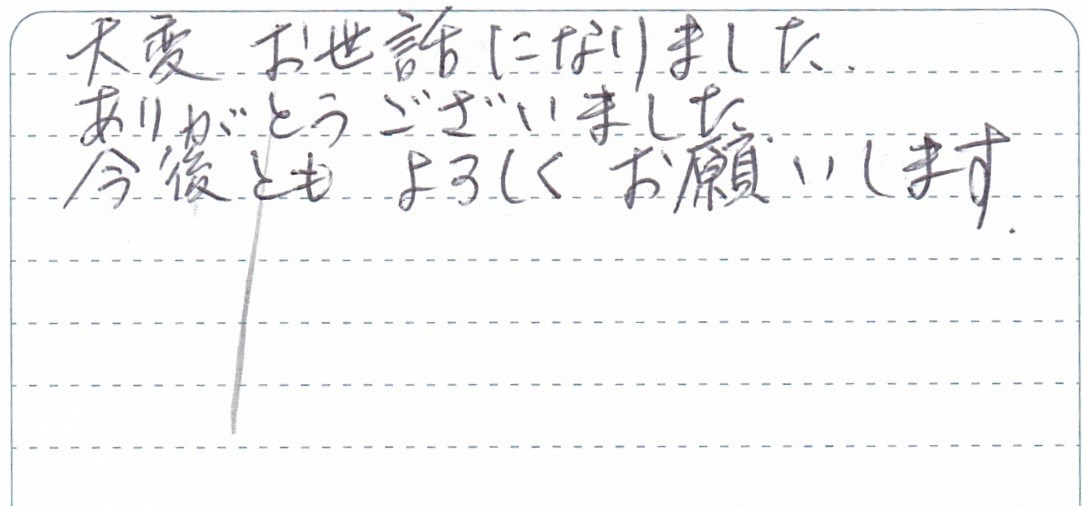 大変 お世話になりました.
ありがとうございました
今後とも よろしく お願いします.